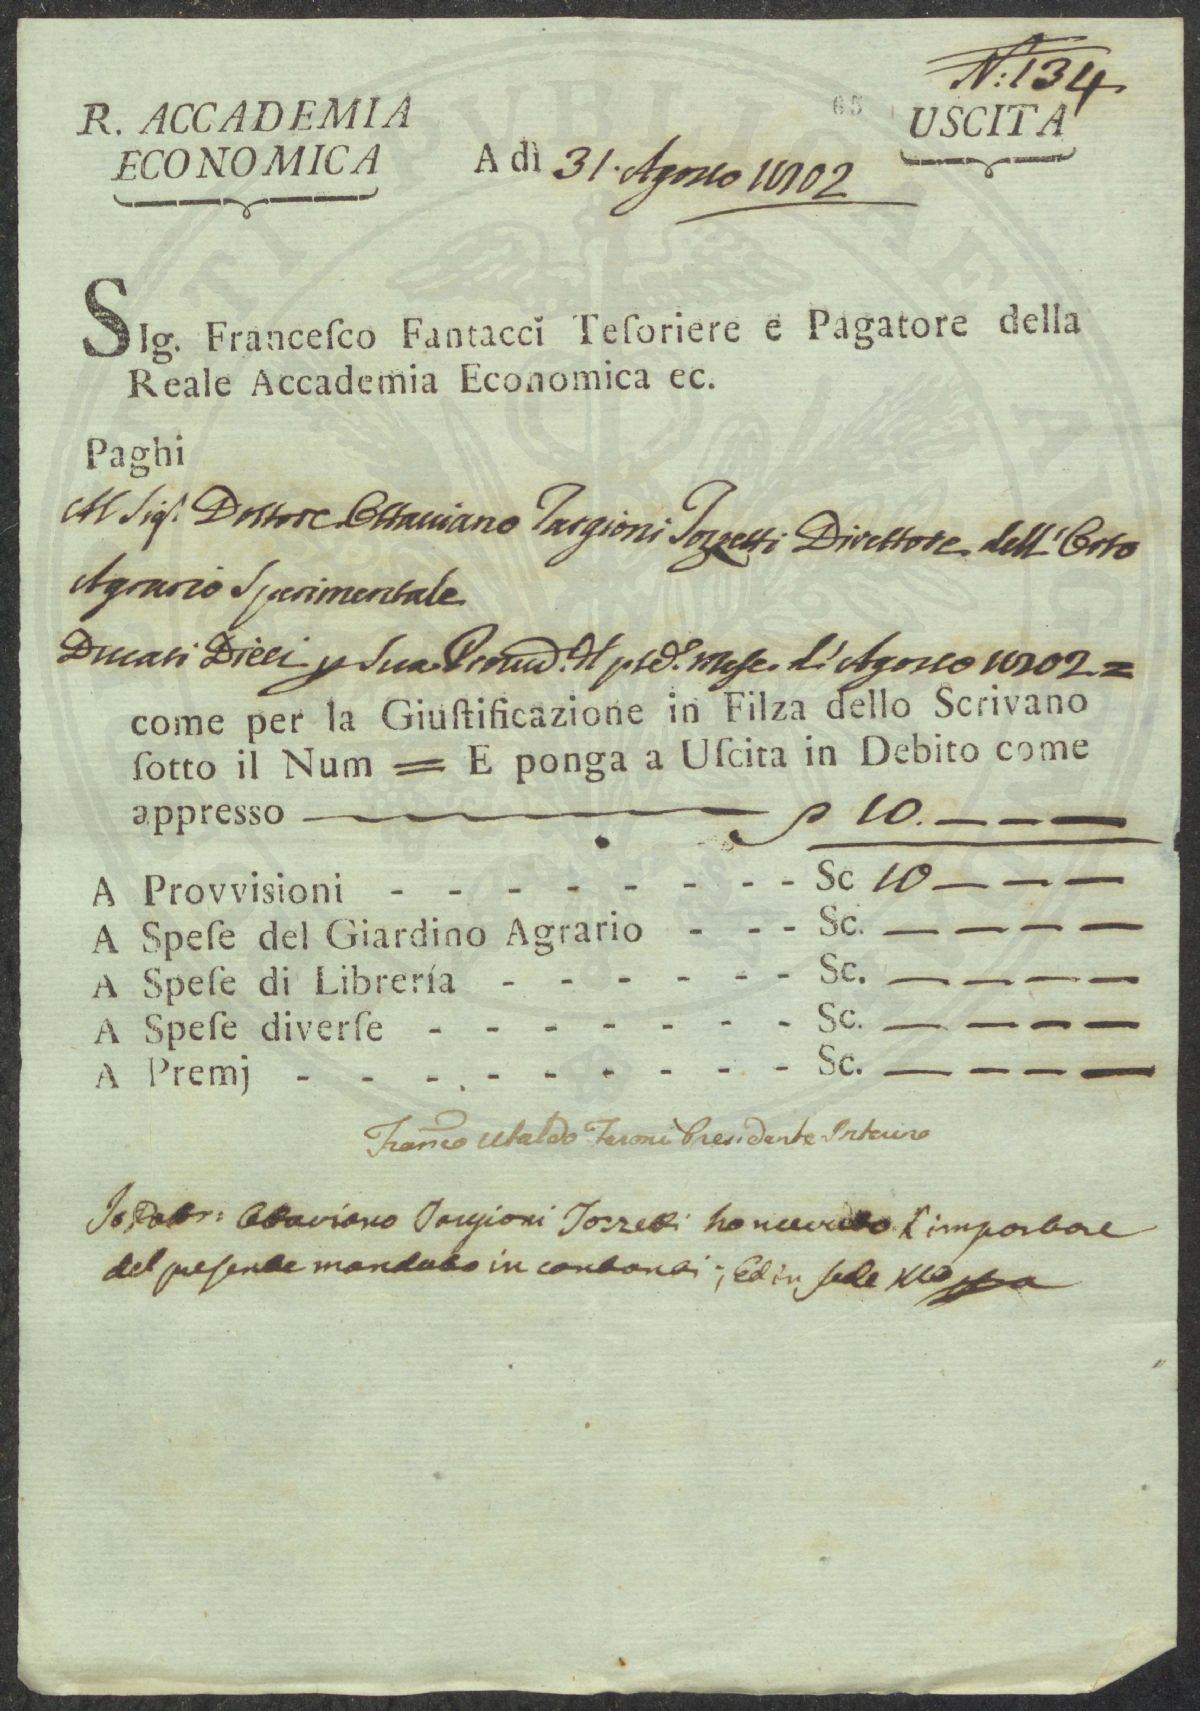 N: 134
65
R. ACCADEMIA
ECONOMICA
A dì 31. Agosto 1802
USCITA
SIg. Franceſco Fantacci Teſoriere e Pagatore della
Reale Accademia Economica ec.
Paghi
Al Sig.r Dottore Ottaviano Targioni Tozzetti Direttore dell' Orto
Agrario Sperimentale
Ducati Dieci p Sua Provvid. del pred.o mese di Agosto 1802 =
come per la Giuſtificazione in Filza dello Scrivano
ſotto il Num = E ponga a Uſcita in Debito come
appresso 10. — — —
A Provvisioni - - - - - - - - Sc 10 — — —
A Speſe del Giardino Agrario - - - Sc. — — — —
A Speſe di Librería - - - - - - Sc. — — — —
A Speſe diverſe - - - - - - - Sc. — — — —
A Premj - - - - - - - - - Sc. — — — —
Franc.o Ubaldo Feroni Presidente Interino
Io Dottr: Ottaviano Targioni Tozzetti ho ricevuto l'importare
del presente mandato in contanti; Ed in fede